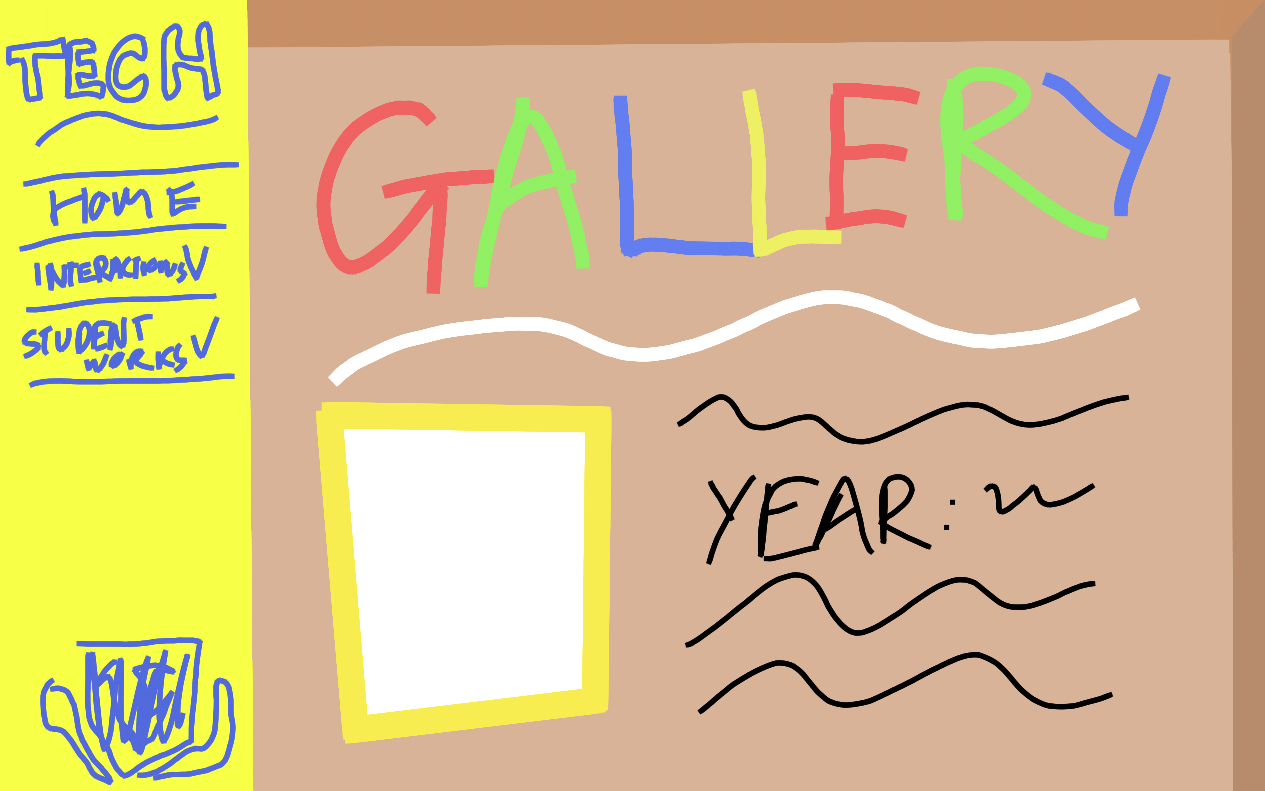 TECH
HOME
INTERACTIONS V
STUDENT
WORKS V
GALLERY
YEAR: